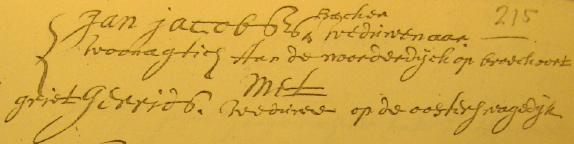 Jan jacobsz backer 215
weduwenaar
woonagtich Aan de noorderdijck op breechoort
Met
griet Gerrids. weduwe op de oosterwegedijk